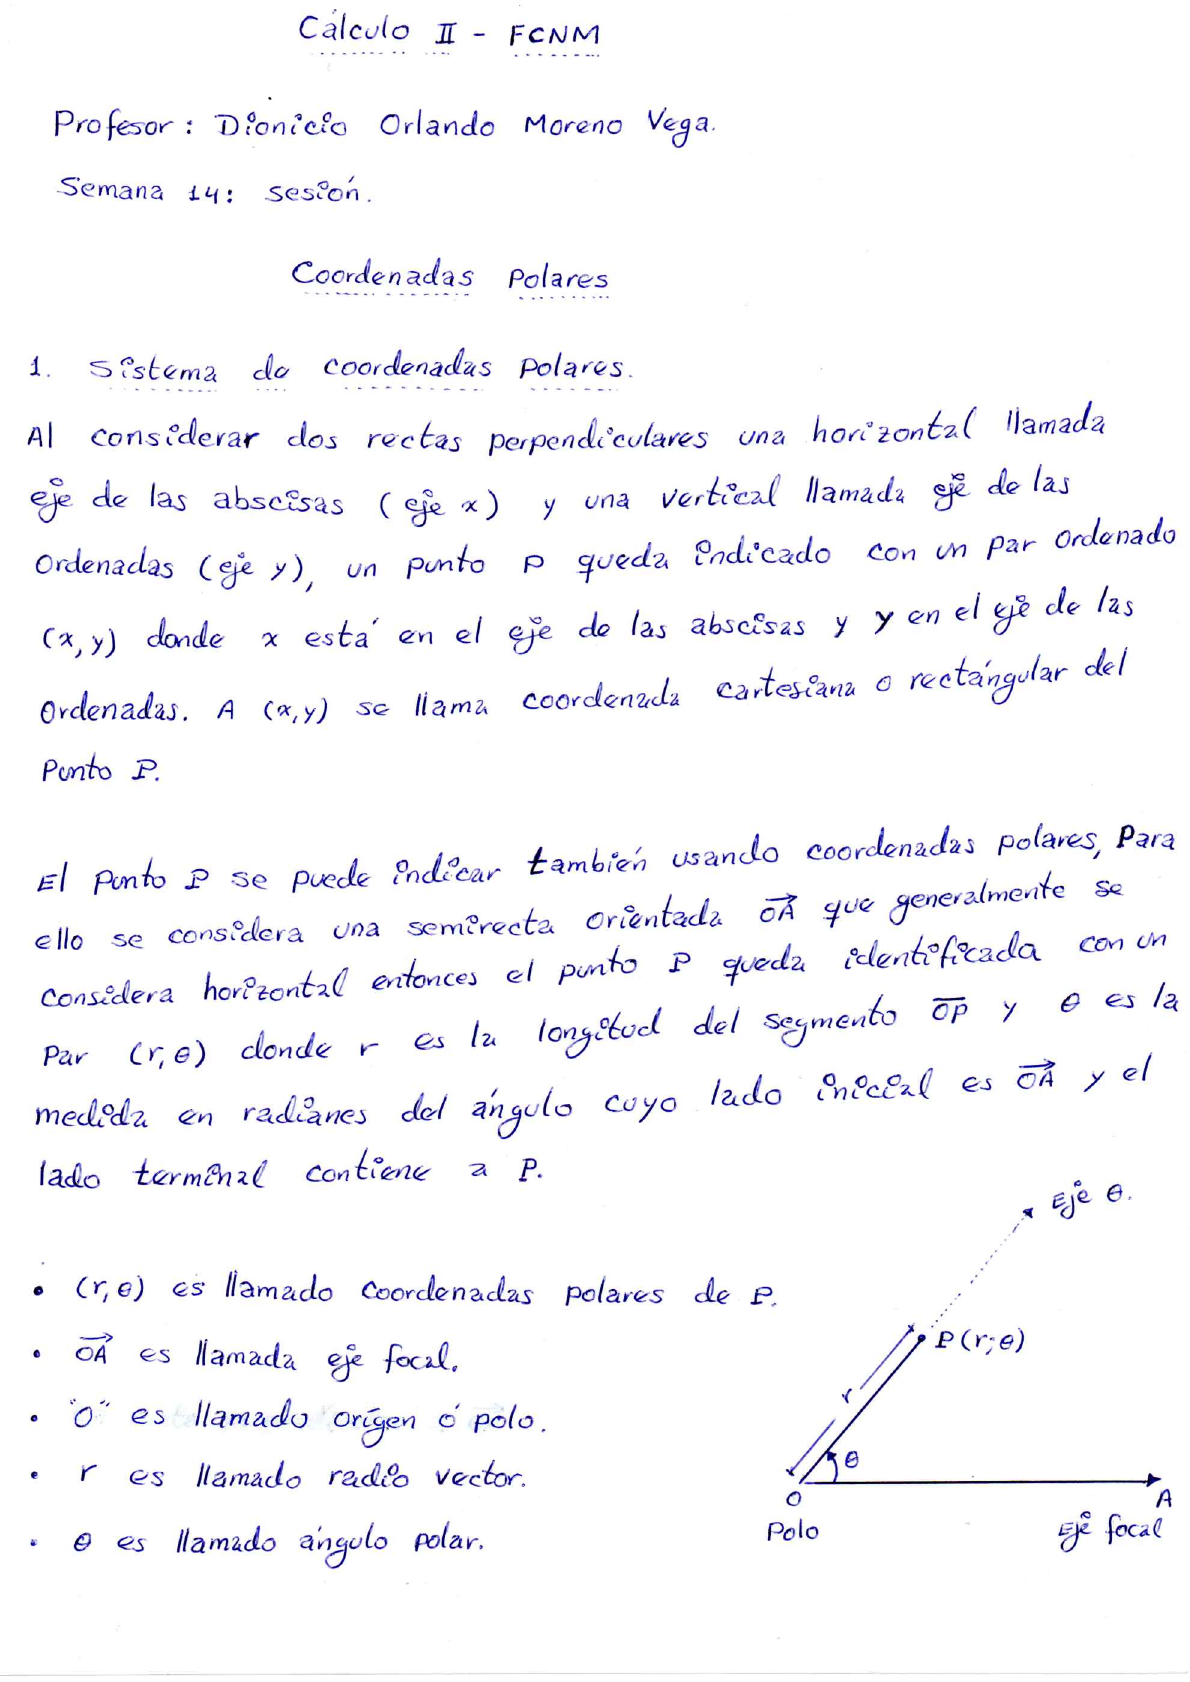 Cálculo II - FCNM
Profesor: Dionicio Orlando Moreno Vega.
Semana 14: sesión.
Coordenadas Polares
1. Sistema de coordenadas polares.
Al considerar dos rectas perpendiculares una horizontal llamada
eje de las abscisas (eje x) y una vertical llamada eje de las
ordenadas (eje y), un punto P queda indicado con un par ordenado
(x,y) donde x está en el eje de las abscisas y y en el eje de las
ordenadas. A (x,y) se llama coordenada cartesiana o rectángular del
Punto P.
El punto P se puede indicar también usando coordenadas polares, Para
ello se considera una semirecta orientada \overrightarrow{OA} que generalmente se
considera horizontal entonces el punto P queda identificada con un
Par (r,θ) donde r es la longitud del segmento \overline{OP} y θ es la
medida en radianes del ángulo cuyo lado inicial es \overrightarrow{OA} y el
lado terminal contiene a P.
Eje θ.
• (r,θ) es llamado coordenadas polares de P.
• \overrightarrow{OA} es llamada eje focal.
P(r;θ)
• "O" es llamado orígen ó polo.
r
• r es llamado radio vector.
θ
O
A
• θ es llamado ángulo polar.
Polo
Eje focal